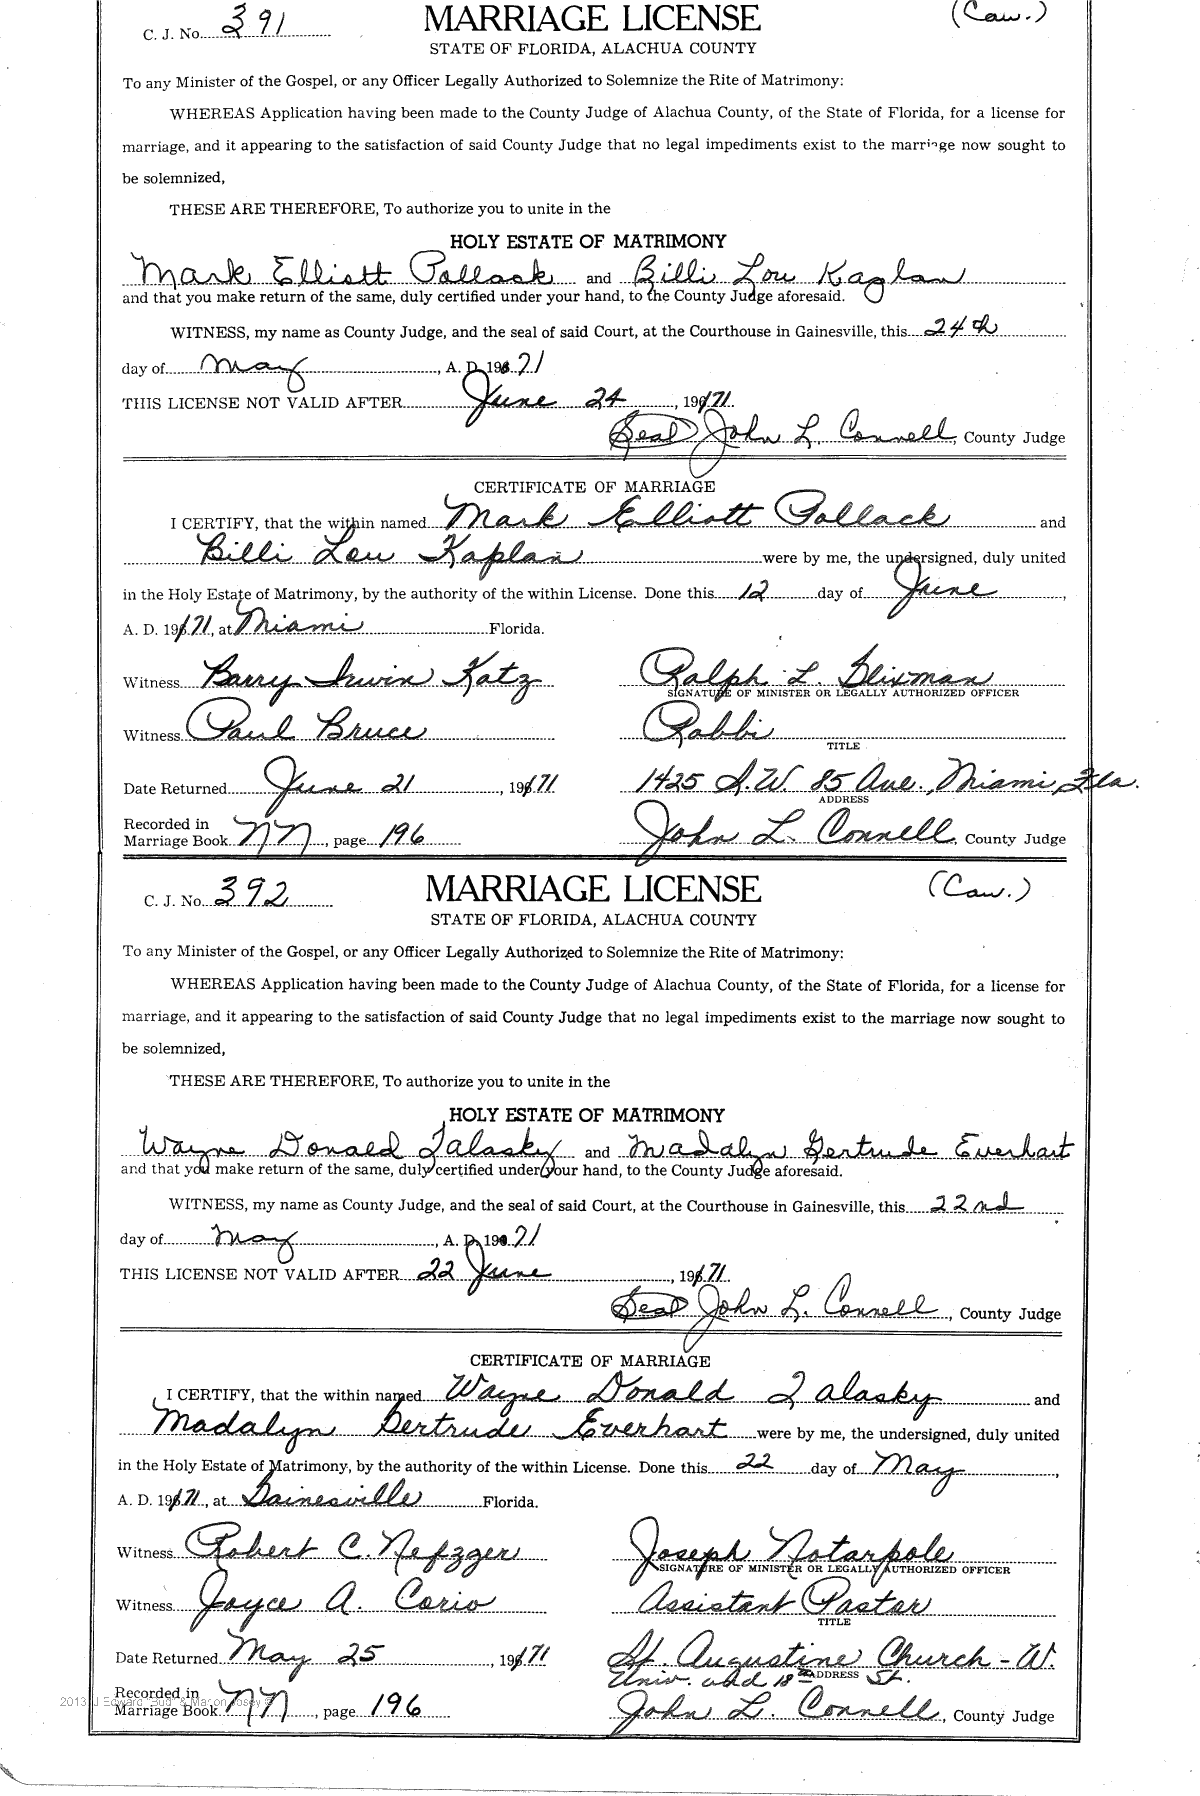 C. J. No. 391 MARRIAGE LICENSE (Caw.)
STATE OF FLORIDA, ALACHUA COUNTY
To any Minister of the Gospel, or any Officer Legally Authorized to Solemnize the Rite of Matrimony:
WHEREAS Application having been made to the County Judge of Alachua County, of the State of Florida, for a license for
marriage, and it appearing to the satisfaction of said County Judge that no legal impediments exist to the marriage now sought to
be solemnized,
THESE ARE THEREFORE, To authorize you to unite in the
HOLY ESTATE OF MATRIMONY
Mark Elliott Pollack and Billi Lou Kaplan
and that you make return of the same, duly certified under your hand, to the County Judge aforesaid.
WITNESS, my name as County Judge, and the seal of said Court, at the Courthouse in Gainesville, this 24th
day of May, A. D. 1971
THIS LICENSE NOT VALID AFTER June 24, 1971
(Seal) John L. Connell, County Judge
CERTIFICATE OF MARRIAGE
I CERTIFY, that the within named Mark Elliott Pollack and
Billi Lou Kaplan were by me, the undersigned, duly united
in the Holy Estate of Matrimony, by the authority of the within License. Done this 12 day of June,
A. D. 1971, at Miami Florida.
Witness Barry Irwin Katz Ralph L. Glixman
SIGNATURE OF MINISTER OR LEGALLY AUTHORIZED OFFICER
Witness Paul Bruce Rabbi
TITLE
Date Returned June 21, 1971 1425 S.W. 85 Ave., Miami, Fla.
ADDRESS
Recorded in
Marriage Book NN, page 196 John L. Connell, County Judge
C. J. No. 392 MARRIAGE LICENSE (Caw.)
STATE OF FLORIDA, ALACHUA COUNTY
To any Minister of the Gospel, or any Officer Legally Authorized to Solemnize the Rite of Matrimony:
WHEREAS Application having been made to the County Judge of Alachua County, of the State of Florida, for a license for
marriage, and it appearing to the satisfaction of said County Judge that no legal impediments exist to the marriage now sought to
be solemnized,
THESE ARE THEREFORE, To authorize you to unite in the
HOLY ESTATE OF MATRIMONY
Wayne Donald Zalasky and Madalyn Gertrude Everhart
and that you make return of the same, duly certified under your hand, to the County Judge aforesaid.
WITNESS, my name as County Judge, and the seal of said Court, at the Courthouse in Gainesville, this 22nd
day of May, A. D. 1971
THIS LICENSE NOT VALID AFTER 22 June, 1971
(Seal) John L. Connell, County Judge
CERTIFICATE OF MARRIAGE
I CERTIFY, that the within named Wayne Donald Zalasky and
Madalyn Gertrude Everhart were by me, the undersigned, duly united
in the Holy Estate of Matrimony, by the authority of the within License. Done this 22 day of May,
A. D. 1971, at Gainesville Florida.
Witness Robert C. Nefzger Joseph Notarpole
SIGNATURE OF MINISTER OR LEGALLY AUTHORIZED OFFICER
Witness Joyce A. Corio Assistant Pastor
TITLE
Date Returned May 25, 1971 St. Augustine Church - W.
Univ. and 18th St.
ADDRESS
Recorded in
Marriage Book NN, page 196 John L. Connell, County Judge
2013 J Edward "Bud" & Marion Josey ©